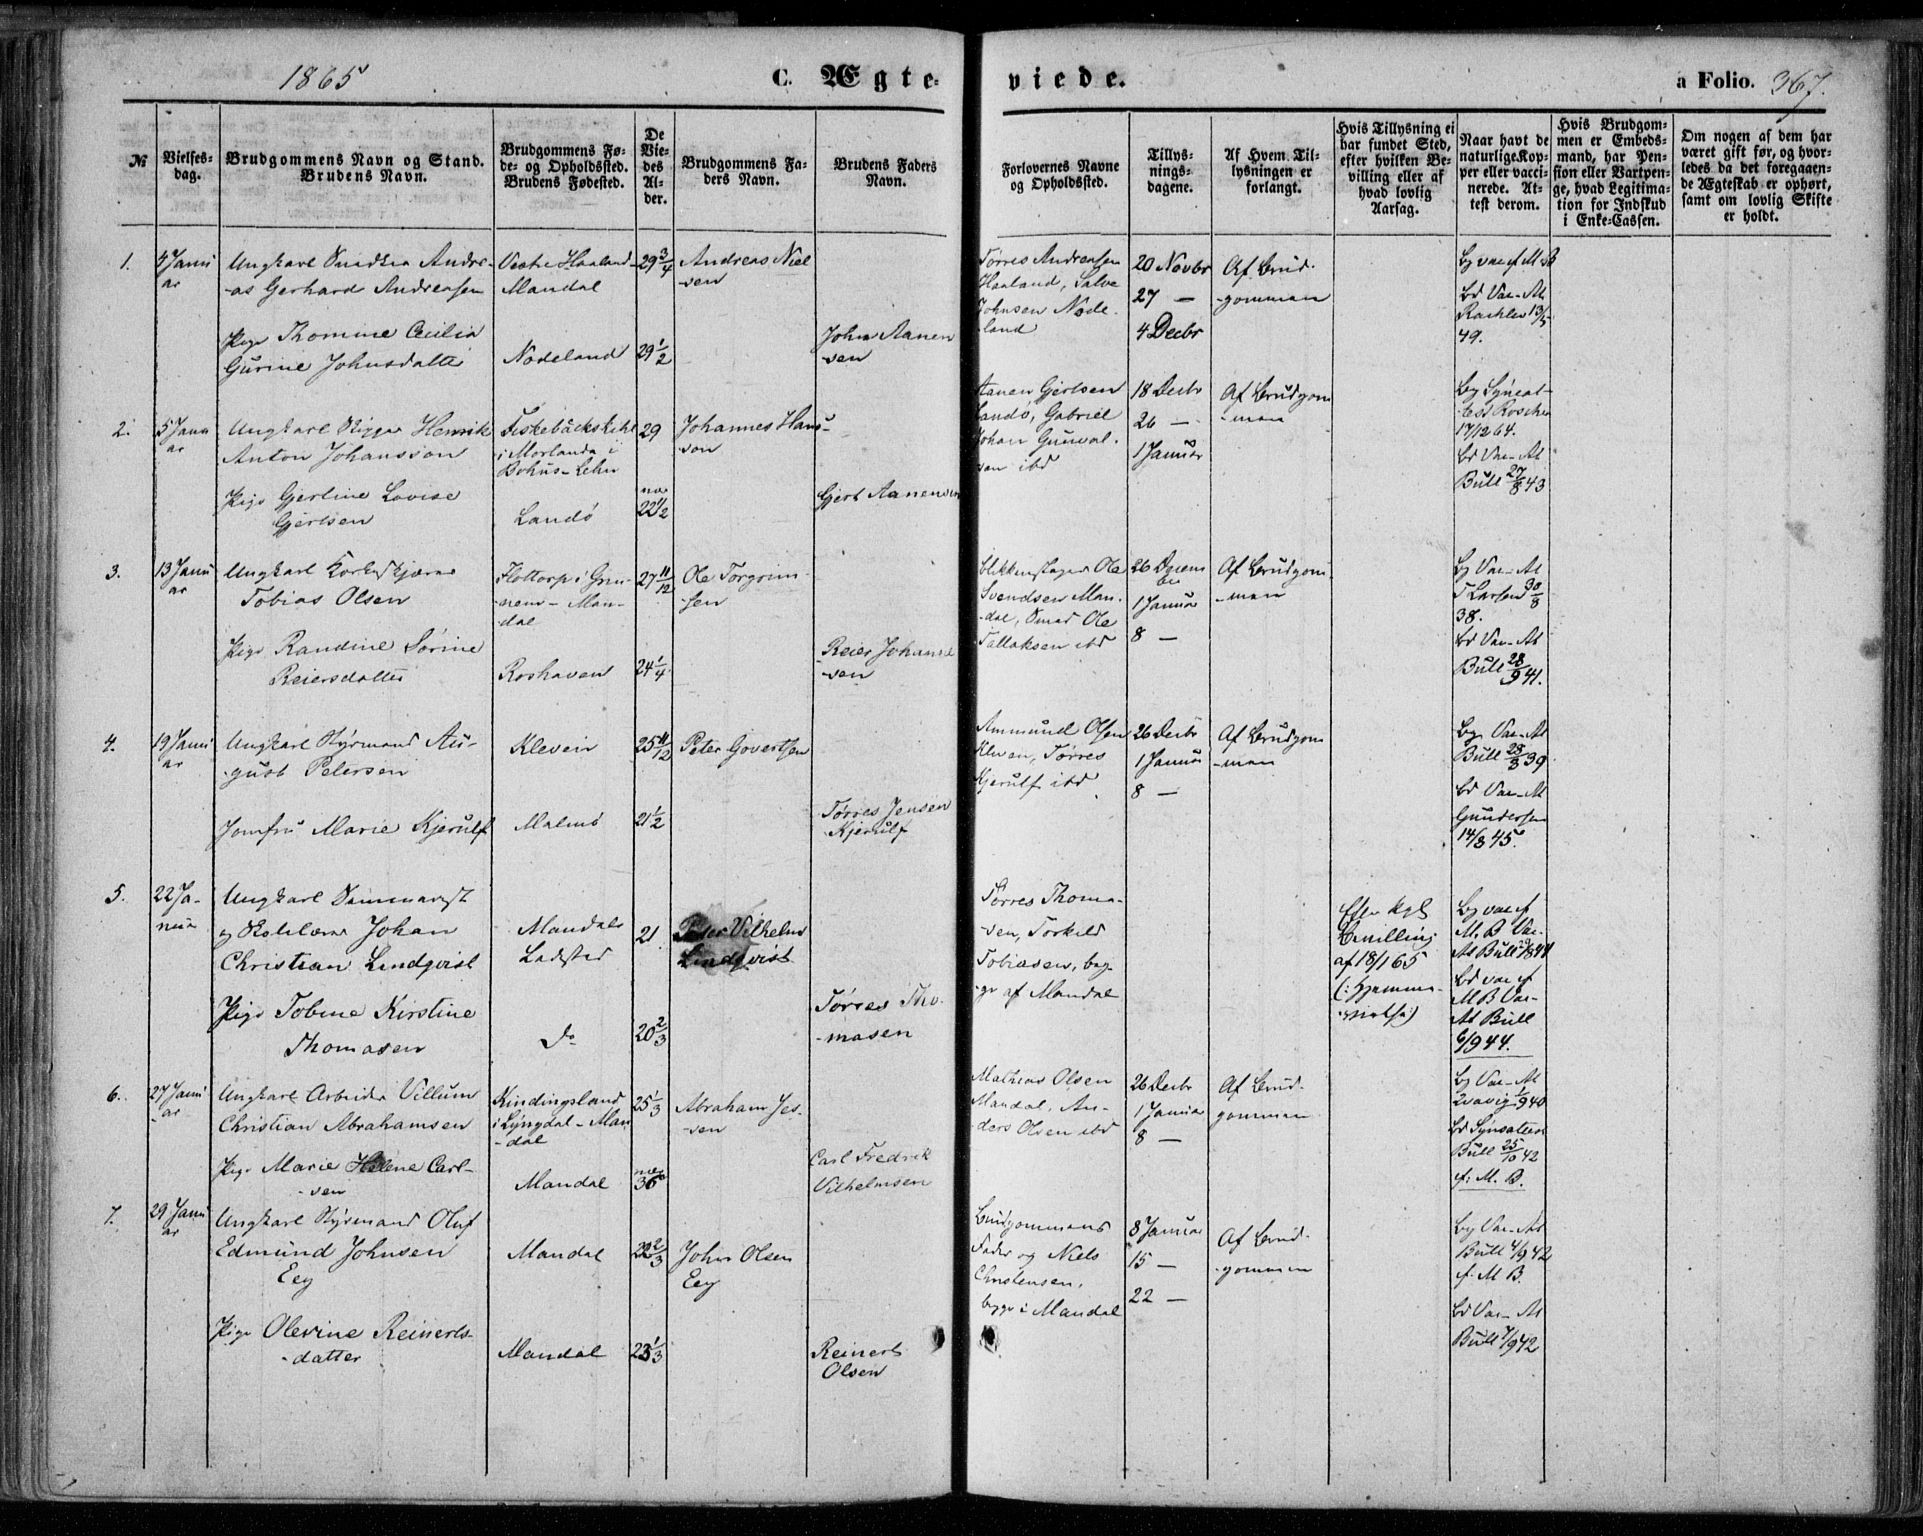 1865
C. Ægte-
viede.
a Folio. 367.
№
Vielses-
dag.
Brudgommens Navn og Stand.
Brudens Navn.
Brudgommens Fø-
de- og Opholdssted.
Brudens Fødested.
De
Vie-
des
Al-
der.
Brudgommens Fa-
ders Navn.
Brudens Faders
Navn.
Forlovernes Navne
og Opholdssted.
Tillys-
nings-
dagene.
Af Hvem Til-
lysningen er
forlangt.
Hvis Tillysning ei
har fundet Sted,
efter hvilken Be-
villing eller af
hvad lovlig
Aarsag.
Naar havt de
naturlige Kop-
per eller vacci-
nerede. At-
test derom.
Hvis Brudgom-
men er Embeds-
mand, har Pen-
sion eller Vartpen-
ge, hvad Legitima-
tion for Indskud
i Enke-Cassen.
Om nogen af dem har
været gift før, og hvor-
ledes da det foregaaen-
de Ægteskab er ophørt,
samt om lovlig Skifte
er holdt.
1.
4 Janu
ar
Ungkarl Snedker Andre-
as Gerhard Andreasen
Vestre Haaland
Mandal
29 3/4
Andreas Niel
sen
Tørres Andreasen
Haaland, Salve
Johnsen Node-
land
20 Novbr
27 —
4 Decbr
Af Brud-
gommen
Bg vac f M B
Bd Vac-At
13/5
49.
Pige Thomine Cecilia
Gurine Johnsdatter
Nodeland
29 1/2
John Aanen
sen
2.
5 Janu
ar
Ungkarl Skipper Henrik
Anton Johansson
Fiskebäckskihl
i Morlanda i
Bohus-Lehn
29
Johannes Hans-
son
Aanen Gjertsen
Landø, Gabriel
Johan Gunval-
sen ibd
18 Decbr
26 —
1 Januar
Af Brudgom
-men
Bg Syneat-
test
17/12 64.
Bd Vac-At
Bull 27/8 43
Pige Gjertine Lovise
Gjertsen
Landø
22 1/2
Gjert Aanensen
3.
13 Janu
ar
Ungkarl Korkeskjærer
Tobias Olsen
Flottorp i Grin-
nem- Man-
dal
27 11/12
Ole Torgrim-
sen
Blikkenslager Ole
Svendsen Man-
dal, Smed Ole
Tallaksen ibd
26 Decem
ber
1 Januar
8 —
Af Brudgom
-men
Bg Vac-At
T Larsen 30/8
38.
Bd Vac-At
Bull 28/9 41.
Pige Randine Sørine
Reiersdatter
Roshaven
24 1/4
Reier Johanne
-sen
4.
19 Janu
ar
Ungkarl Styrmand Au-
gust Petersen
Kleven
25 11/12
Peter Govertsen
Ammund Olsen
Kleven, Tørres
Kjerulf ibd
26 Decbr
1 Januar
8 —
Af Brudgom
-men
Bg. Vac-At
Bull 28/8 39
Bd Vac-At
Gundersen
14/8 45.
Jomfru Marie Kjerulf
Malmø
21 1/2
Tørres Jensen
Kjerulf
5.
22 Ja-
nuar
Ungkarl Tømmermst
og Johan
Christian Lindqvist
Mandals
Ladsted
21
Peter Vilhelm
Lindqvist
Tørres Thoma-
sen, Torkild
Tobiasen, beg-
ge af Mandal
Efter kgl
Bevilling
af 18/1 65
(: Hjemme-
vielse)
Bg vac f
M. B Vac-
At Bull 1844
Bd vac f
M B Vac-
At Bull
6/9 44.
Pige Tobine Kirstine
Thomasen
do
20 2/3
Tørres Tho-
-masen
6.
27 Janu
ar
Ungkarl Arbeider Villum
Christian Abrahamsen
Kindingsland
i Lyngdal - Man
-dal
25 1/3
Abraham Jes-
-sen
Mathias Olsen
Mandal, An-
ders Olsen ibd
26 Decbr
1 Januar
8 —
Af Brud-
gommen
Bg Vac-At
1/9 40
Bd Synsattest
Bull 25/10 42
f. M. B.
Pige Marie Helene Carl-
-sen
Mandal
36
Carl Fredrik
Vilhelmsen
7.
29 Janu
ar
Ungkarl Styrmand Oluf
Edmund Johnsen
Eeg
Mandal
22 2/3
John Olsen
Eeg
Brudgommens
Fader og Niels
Christensen,
begge i Mandal
8 Januar
15 —
22 —
Af Brud-
-gommen
Bg Vac-At
Bull 4/9 42
f. M B.
Bd Vac-At
Bull 4/9 42
Pige Olevine Reinerts-
-datter
Mandal
23 1/3
Reinert
Olsen